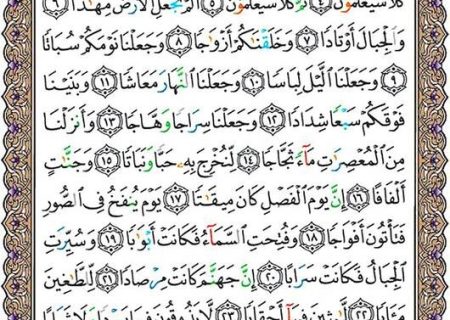 كَلَّا سَيَعْلَمُونَ ٤ ثُمَّ كَلَّا سَيَعْلَمُونَ ٥ أَلَمْ نَجْعَلِ الْأَرْضَ مِهَادًا ٦
وَالْجِبَالَ أَوْتَادًا ٧ وَخَلَقْنَاكُمْ أَزْوَاجًا ٨ وَجَعَلْنَا نَوْمَكُمْ سُبَاتًا
٩ وَجَعَلْنَا اللَّيْلَ لِبَاسًا ١٠ وَجَعَلْنَا النَّهَارَ مَعَاشًا ١١ وَبَنَيْنَا
فَوْقَكُمْ سَبْعًا شِدَادًا ١٢ وَجَعَلْنَا سِرَاجًا وَهَّاجًا ١٣ وَأَنزَلْنَا
مِنَ الْمُعْصِرَاتِ مَاءً ثَجَّاجًا ١٤ لِّنُخْرِجَ بِهِ حَبًّا وَنَبَاتًا ١٥ وَجَنَّاتٍ
أَلْفَافًا ١٦ إِنَّ يَوْمَ الْفَصْلِ كَانَ مِيقَاتًا ١٧ يَوْمَ يُنفَخُ فِي الصُّورِ
فَتَأْتُونَ أَفْوَاجًا ١٨ وَفُتِحَتِ السَّمَاءُ فَكَانَتْ أَبْوَابًا ١٩ وَسُيِّرَتِ
الْجِبَالُ فَكَانَتْ سَرَابًا ٢٠ إِنَّ جَهَنَّمَ كَانَتْ مِرْصَادًا ٢١ لِّلطَّاغِينَ
مَآبًا ٢٢ لَّابِثِينَ فِيهَا أَحْقَابًا ٢٣ لَّا يَذُوقُونَ فِيهَا بَرْدًا وَلَا شَرَابًا